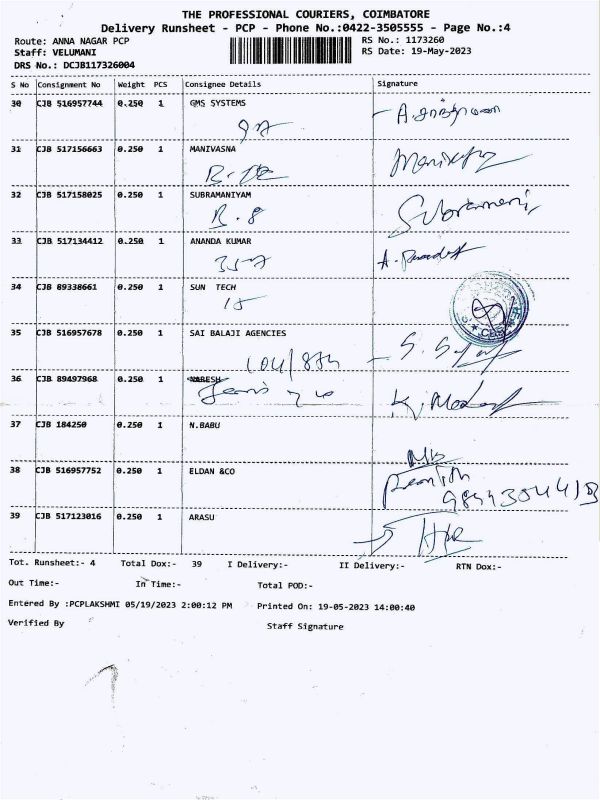 THE PROFESSIONAL COURIERS, COIMBATORE
Delivery Runsheet - PCP - Phone No.:0422-3505555 - Page No.:4
Route: ANNA NAGAR PCP
RS No.: 1173260
Staff: VELUMANI
RS Date: 19-May-2023
DRS No.: DCJB117326004
S No Consignment No Weight PCS Consignee Details Signature
30 CJB 516957744 0.250 1 GMS SYSTEMS
31 CJB 517156663 0.250 1 MANIVASNA
32 CJB 517158025 0.250 1 SUBRAMANIYAM
B-8 Subramani,
33 CJB 517134412 0.250 1 ANANDA KUMAR
34 CJB 89338661 0.250 1 SUN TECH
35 CJB 516957678 0.250 1 SAI BALAJI AGENCIES
36 CJB 89497968 0.250 1 NARESH
37 CJB 184250 0.250 1 N.BABU
38 CJB 516957752 0.250 1 ELDAN &CO
39 CJB 517123016 0.250 1 ARASU
Tot. Runsheet:- 4 Total Dox:- 39 I Delivery:- II Delivery:- RTN Dox:-
Out Time:- In Time:- Total POD:-
Entered By :PCPLAKSHMI 05/19/2023 2:00:12 PM Printed On: 19-05-2023 14:00:40
Verified By Staff Signature